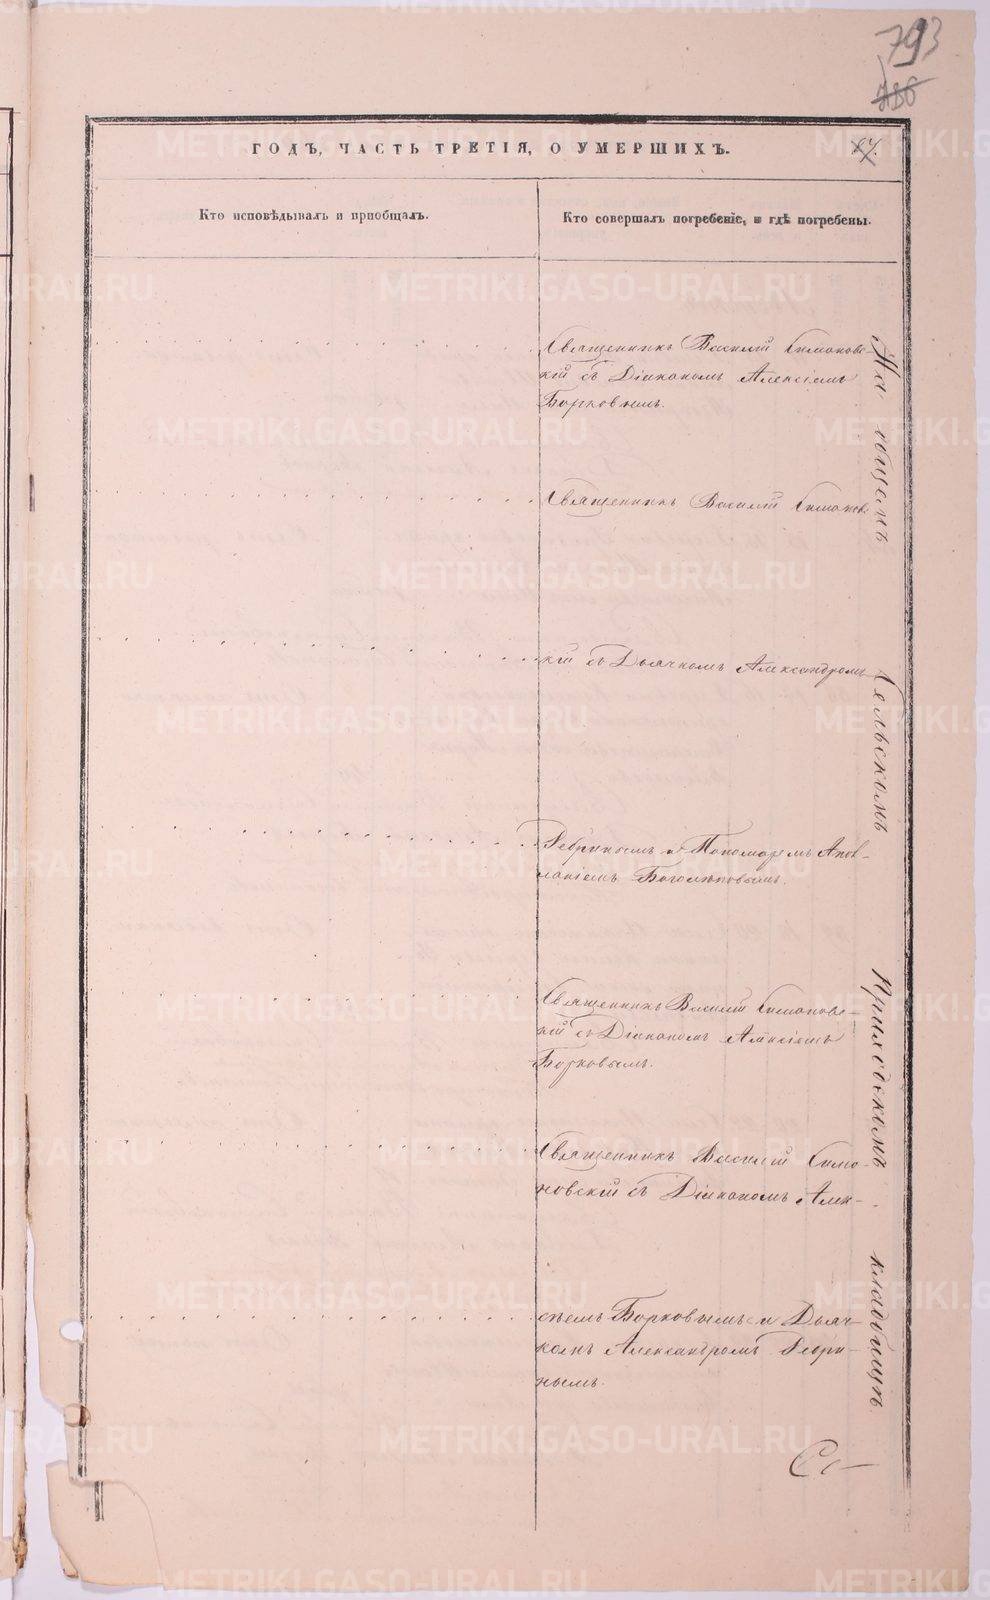 793
ГОДЪ, ЧАСТЬ ТРЕТІЯ, О УМЕРШИХЪ.
Кто исповѣдывалъ и пріобщалъ.
Кто совершалъ погребеніе, и гдѣ погребены.
Священникъ Василій Симановс-
кій съ Діакономъ Алексіемъ
Борковымъ.
Священникъ Василій Симановс
кій съ Дьячкомъ Александромъ
Ребринымъ и Пономаремъ Апол-
лоніемъ Боголюбовымъ.
Священникъ Василій Симановс-
кій съ Діакономъ Алексіемъ
Борковымъ.
Священникъ Василій Симо-
новскій съ Діакономъ Алек-
сѣемъ Борковымъ и Дьяч-
комъ Александромъ Ребри-
нымъ.
На общемъ Сельскомъ Приходскомъ кладбищѣ.
METRIKI.GASO-URAL.RU